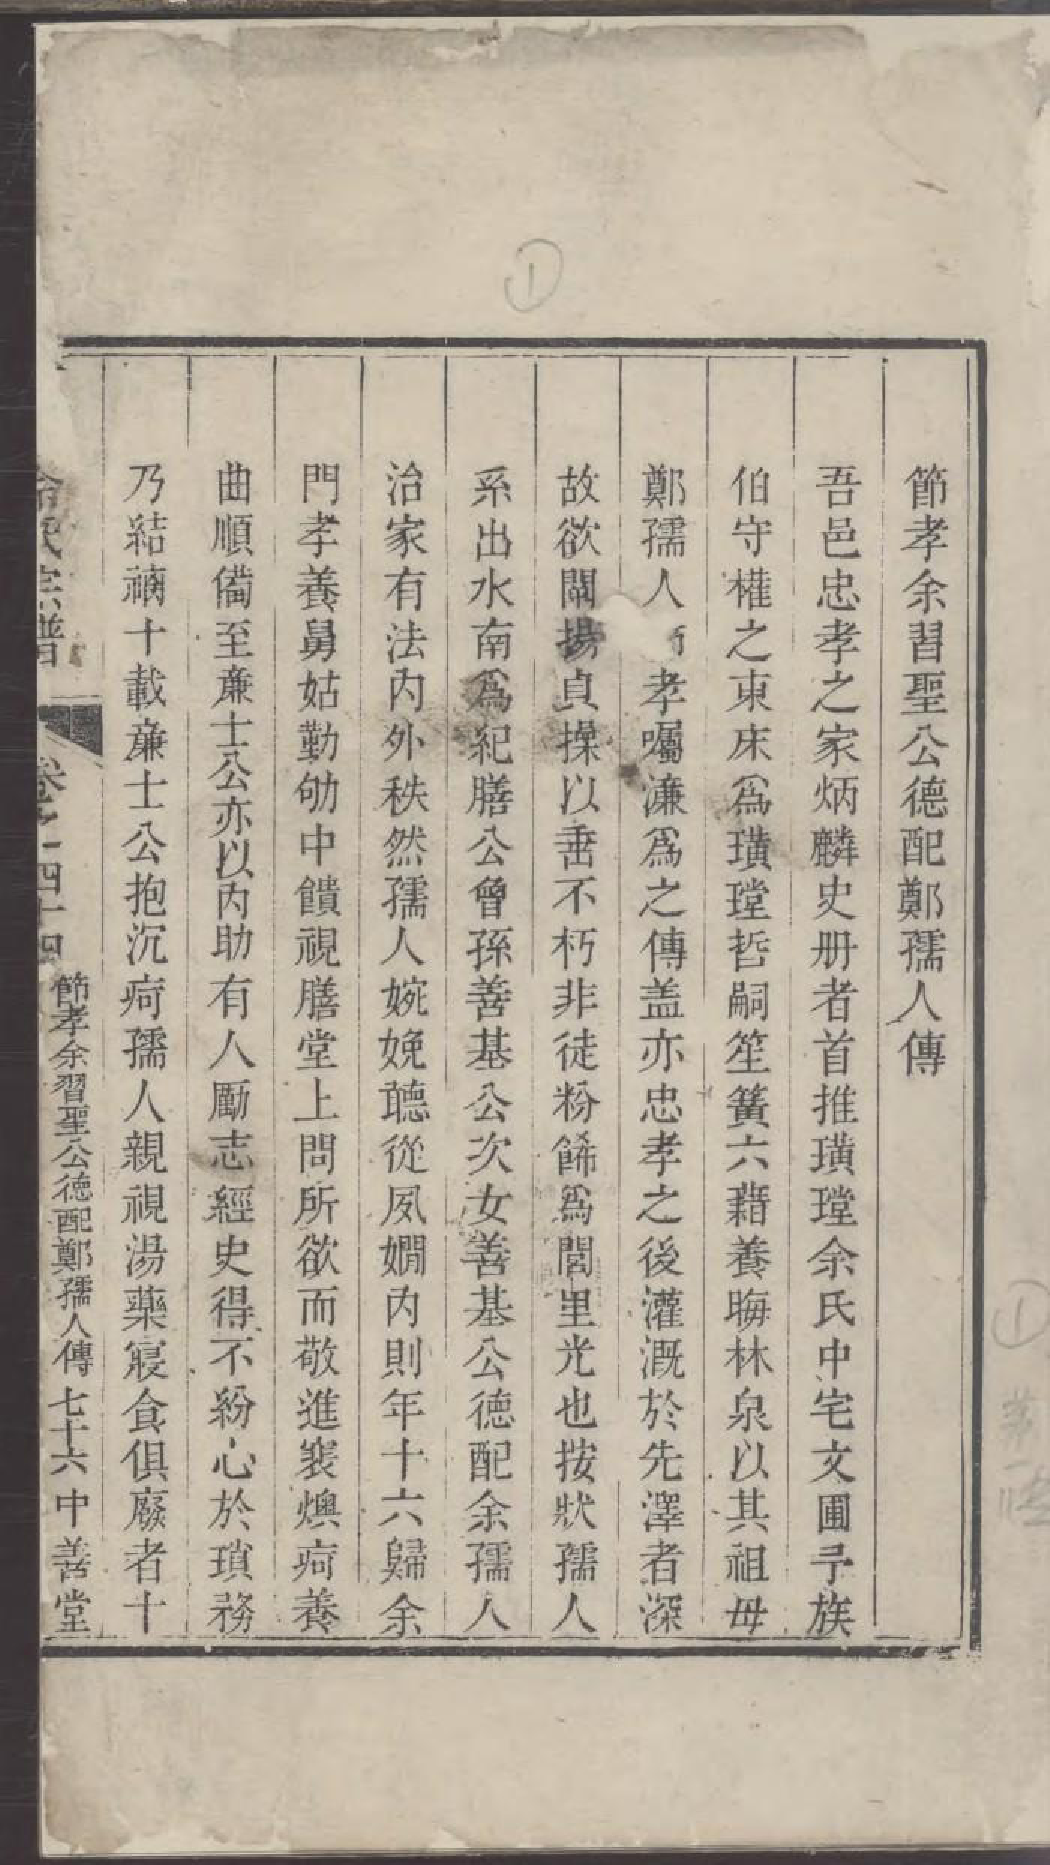 節孝余習聖公德配鄭孺人傳
吾邑忠孝之家炳麟史册者首推璜瑝余氏中宅文圃予族
伯守權之東床爲璜瑝哲嗣笙簧六藉養晦林泉以其祖毋
鄭孺人 孝囑濂爲之傳盖亦忠孝之後灌溉於先澤者深
故欲闡揚貞操以垂不朽非徒粉餙爲閭里光也按狀孺人
系出水南爲紀膳公曾孫善基公次女善基公德配余孺人
治家有法内外秩然孺人婉娩聽從夙嫺内則年十六歸余
門孝養舅姑勤劬中饋視膳堂上問所欲而敬進裘燠疴養
曲順備至亷士公亦以内助有人勵志經史得不紛心於瑣務
乃結褵十載亷士公抱沉疴孺人親視湯藥寢食俱廢者十
余氏宗譜 卷之四十四 節孝余習聖公德配鄭孺人傳 七十六 中善堂
①
①